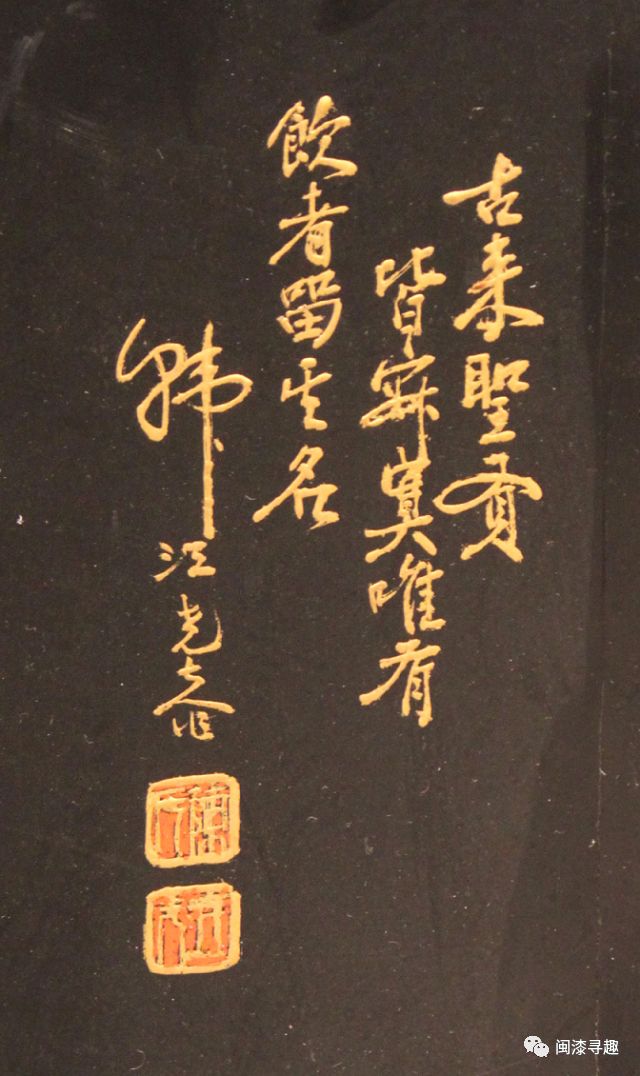 古来聖賢
皆寂寞唯有
飲者留其名
韩江
闽漆寻趣